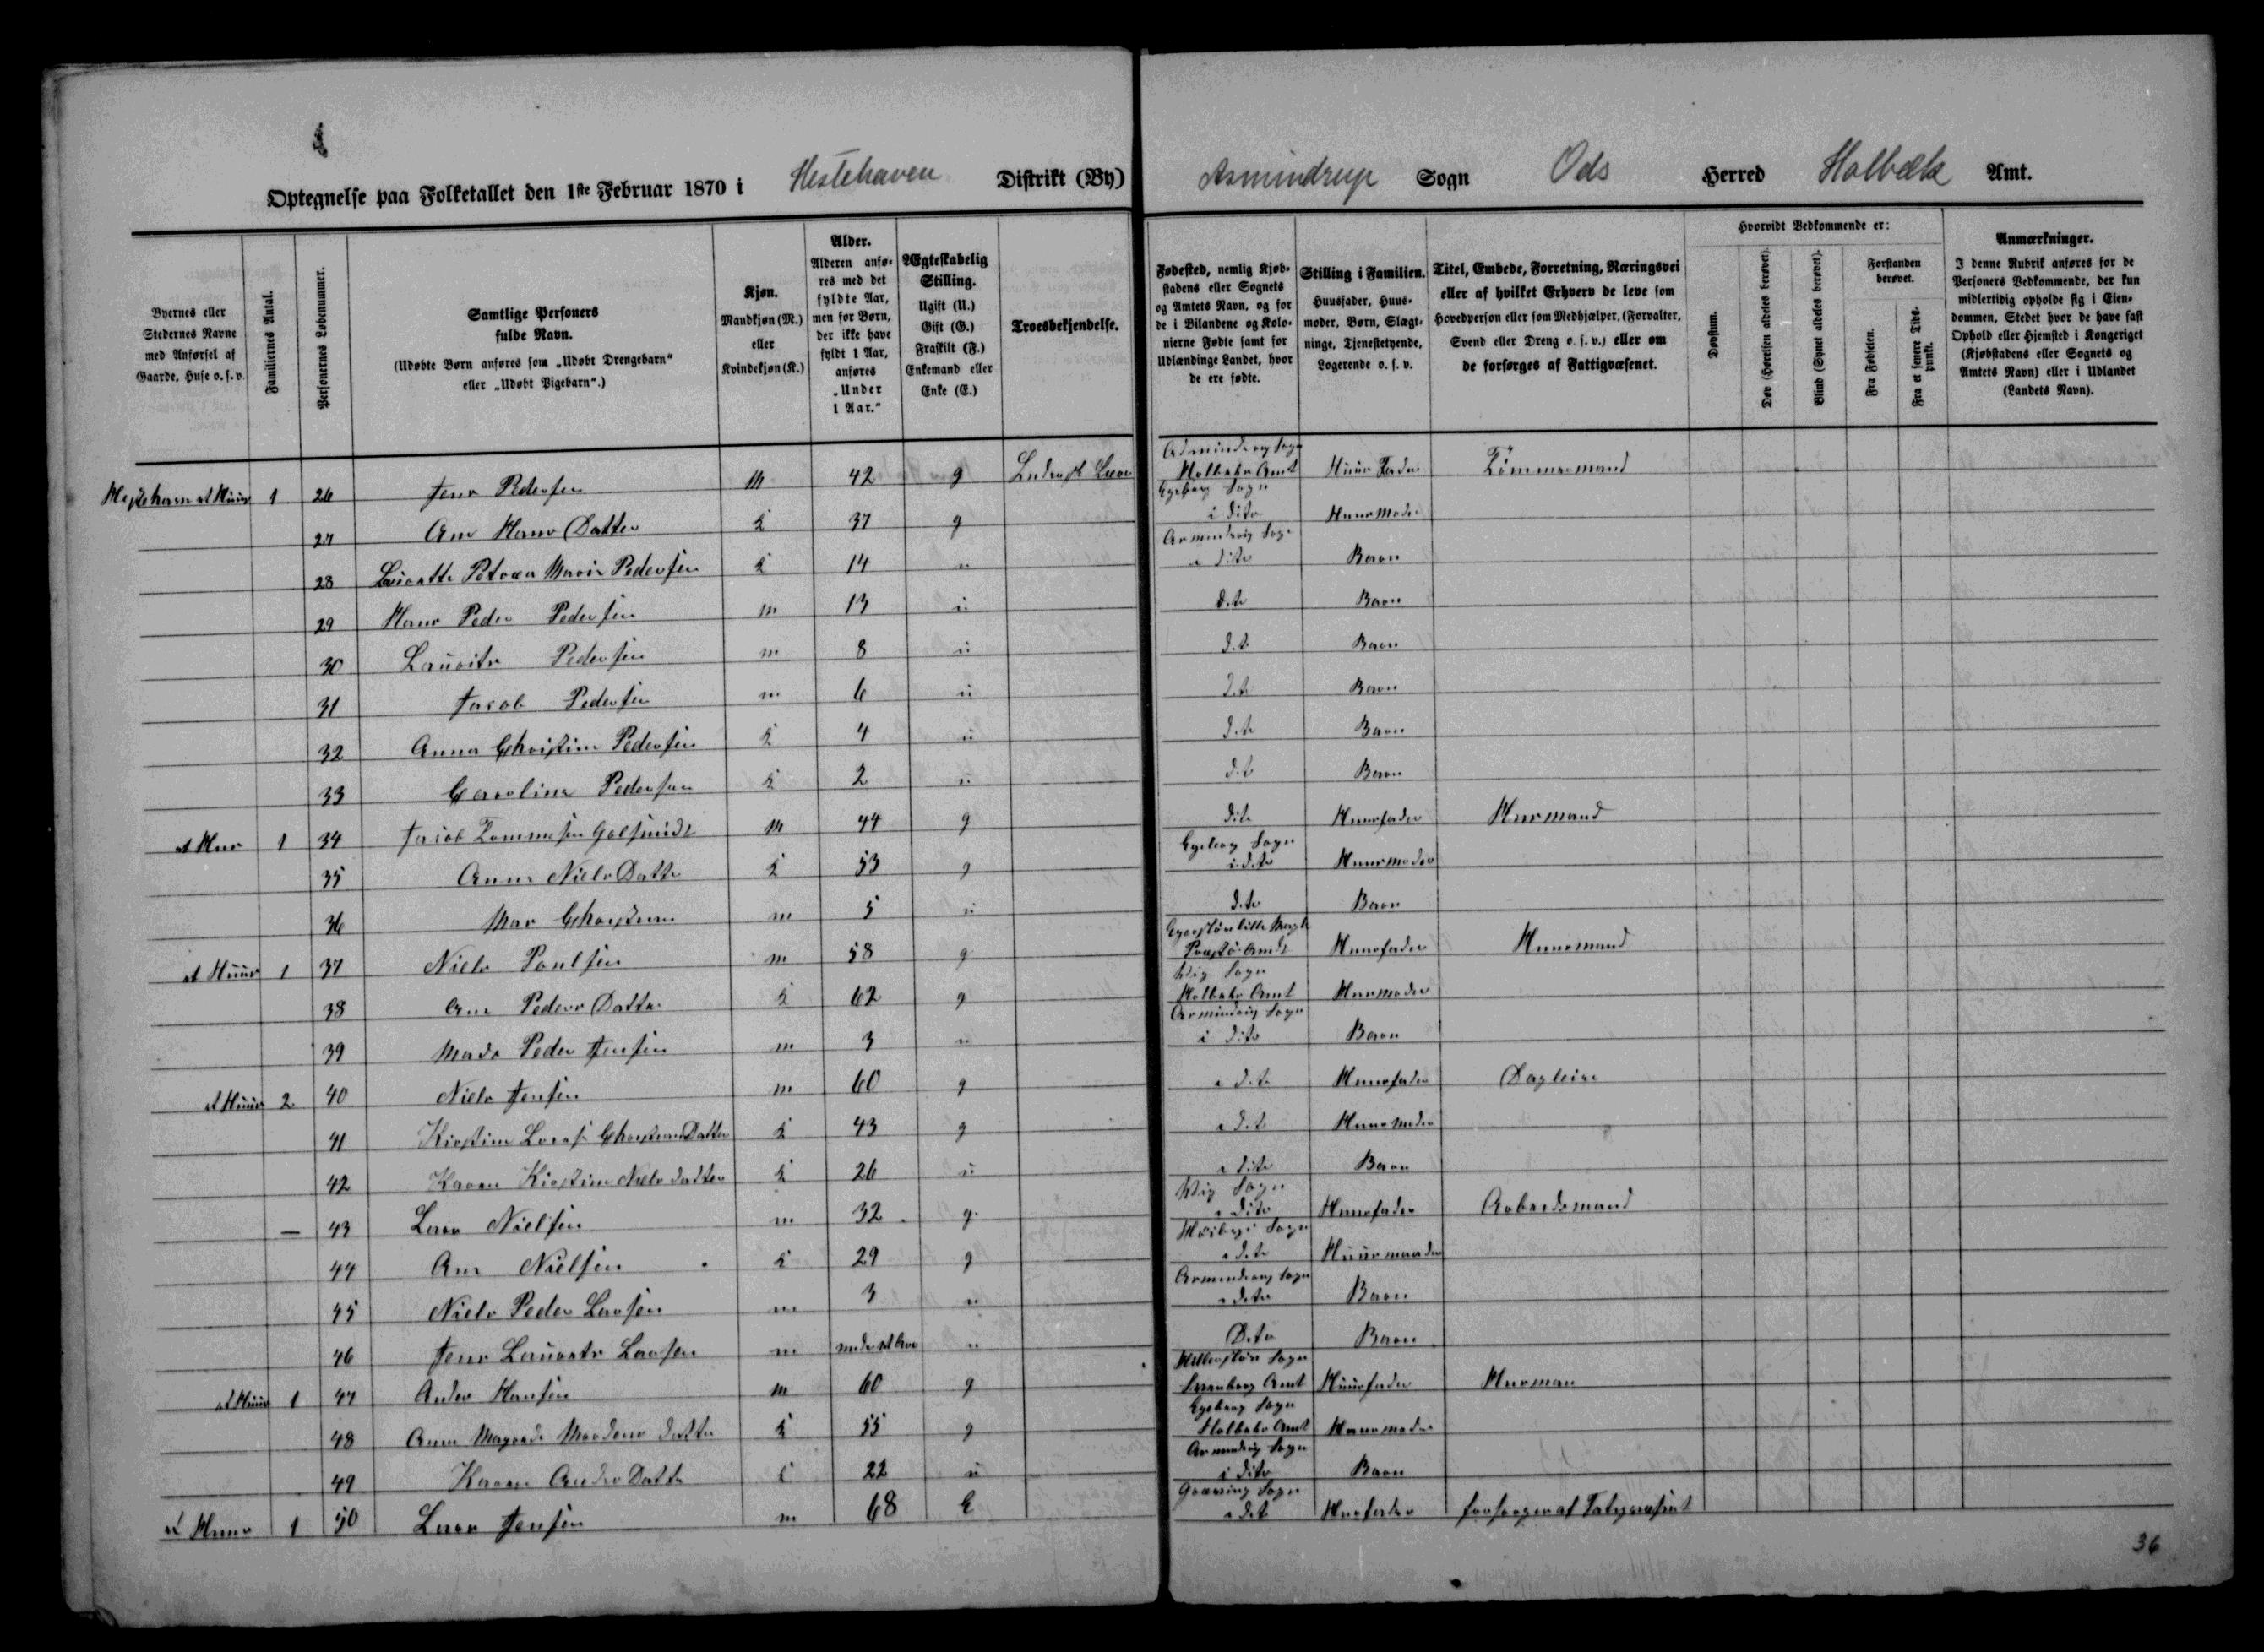 Optegnelse paa Folketallet den 1ste Februar 1870 i Hestehaven Distrikt (By) Asmindrup Sogn Ods Herred Holbæk Amt.
Byernes eller Stedernes Navne med Anførsel af Gaarde, Huse o. s. v.
Familiernes Antal.
Personernes Løbenummer.
Samtlige Personers fulde Navn.
(Udøbte Børn anføres som „Udøbt Drengebarn“ eller „Udøbt Pigebarn“.)
Kjøn.
Mandkjøn (M.) eller Kvindekjøn (K.)
Alder.
Alderen anføres med det fyldte Aar, men for Børn, der ikke have fyldt 1 Aar, anføres „Under 1 Aar.“
Ægteskabelig Stilling.
Ugift (U.) Gift (G.) Fraskilt (F.) Enkemand eller Enke (E.)
Troesbekjendelse.
Fødested, nemlig Kjøbstadens eller Sognets og Amtets Navn, og for de i Bilandene og Kolonierne Fødte samt for Udlændinge Landet, hvor de ere fødte.
Stilling i Familien.
Huusfader, Huusmoder, Børn, Slægtninge, Tjenestetyende, Logerende o. s. v.
Titel, Embede, Forretning, Næringsvei eller af hvilket Erhverv de leve som Hovedperson eller som Medhjælper, (Forvalter, Svend eller Dreng o. s. v.) eller om de forsørges af Fattigvæsenet.
Hvorvidt Vedkommende er:
Døvstum.
Døv (Hørelsen aldeles berøvet).
Blind (Synet aldeles berøvet).
Forstanden berøvet.
Fra Fødselen.
Fra et senere Tidspunkt.
Anmærkninger.
I denne Rubrik anføres for de Personers Vedkommende, der kun midlertidig opholde sig i Eiendommen, Stedet hvor de have fast Ophold eller Hjemsted i Kongeriget (Kjøbstadens eller Sognets og Amtets Navn) eller i Udlandet (Landets Navn).
1 26 Jens Pedersen M 42 g Holbeks Amt Huus Fader Tömmermand
27 Ane Hans Datter K 37 g Egeberg Sogn i dito Huusmoder
28 Petrea Marie Pedersen K 14 u dito Barn
29 Hans Peder Pedersen m 13 u dito Barn
30 Lauritz Pedersen m 8 u dito Barn
31 Jacob Pedersen m 6 u dito Barn
32 Anna Christine Pedersen K 4 u dito Barn
33 Caroline Pedersen K 2 u dito Barn
et Huus 1 34 Jacob M 44 g dito Huusfader Huusmand
35 Anne Niels Datter K 53 g Egeberg Sogn i dito Huusmoder
36 m 5 u dito Barn
et Huus 1 37 Niels Poulsen m 58 g Huusfader Huusmand
38 Ane Peders Datter K 62 g Holbeks Amt Huusmoder
39 Mads Peder Jensen m 3 u i dito Barn
et Huus 2 40 Niels Jensen m 60 g i dito Huusfader Dagleier
41 Kirstine K 43 g i dito Huusmoder
42 Karen Kirstine Niels datter K 26 u i dito Barn
— 43 Lars Nielsen m 32 g Sogn i dito Huusfader Arbeidsmand
44 Ane Nielsen K 29 g Sogn i dito
45 Niels Peder Larsen m 3 u Sogn i dito Barn
46 Jens Larsen m u Dito Barn
et Huus 1 47 Anders Hansen m 60 g Amt Huusfader
48 Datter K 55 g Egeberg Sogn Holbeks Amt Huusmoder
49 Karen Anders Datter K 22 u i dito Barn
et Huus 1 50 Lars Jensen m 68 E Sogn i dito
36